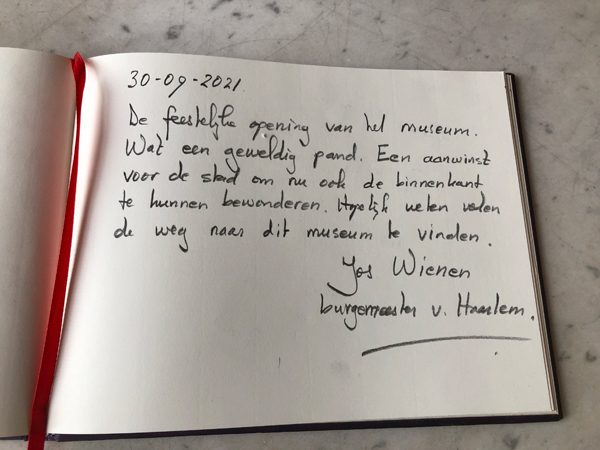 30-09-2021.
De feestelijke opening van het museum.
Wat een geweldig pand. Een aanwinst
voor de stad om nu ook de binnenkant
te kunnen bewonderen. Hopelijk weten velen
de weg naar dit museum te vinden.
Jos Wienen
burgemeester v. Haarlem.